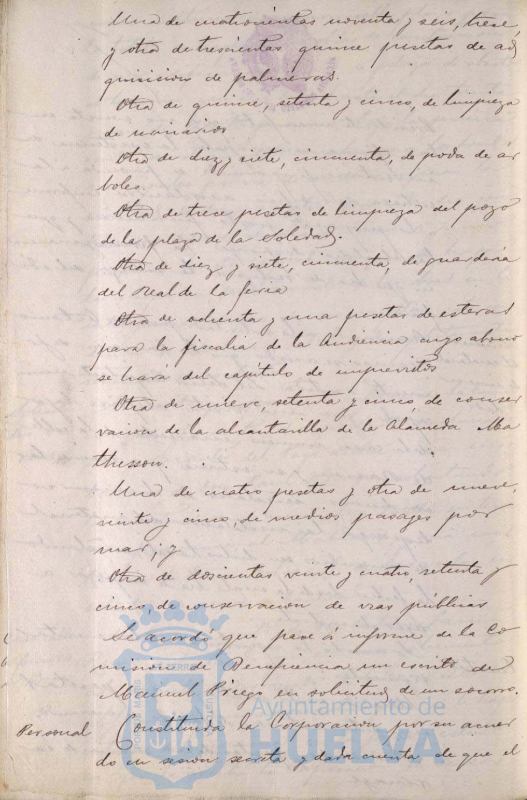 Una de cuatrocientas noventa y seis, trece,
y otra de trescientas quince pesetas de ad
quisicion de palmeras.
Otra de quince, setenta y cinco, de limpieza
de urinarios
Otra de diez y siete, cincuenta, de poda de ár
boles.
Otra de trece pesetas de limpieza del pozo
de la plaza de la Soledad.
Otra de diez y siete, cincuenta, de guarderia
del Real de la feria
Otra de ochenta y una pesetas de esteras
para la fiscalia de la Audiencia cuyo abono
se hará del capítulo de imprevistos
Otra de nueve, setenta y cinco, de conser
vacion de la alcantarilla de la Alameda Ma
thesson.
Una de cuatro pesetas y otra de nueve,
veinte y cinco, de medios pasages por
mar; y
Otra de doscientas veinte y cuatro, setenta y
cinco, de conservacion de vias publicas
Se acordó que pase á informe de la Co
mision de Beneficencia un escrito de
Manuel Priego en solicitud de un socorro.
Personal Constituida la Corporacion por su acuer
do en sesion secreta y dada cuenta de que el
Ayuntamiento de
HUELVA